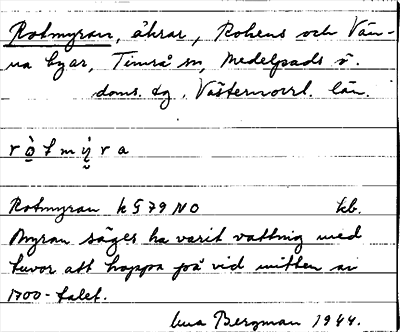 Rotmyran, åkrar, Rokens och Vän-
na byar, Timrå sn, Medelpads ö.
doms. tg. Västernorrl. län.
r ò t m ỳ r a
Rotmyran k 579 NO kb.
Myran säges ha varit vattnig med
tuvor att hoppa på vid mitten av
1700-talet.
Bergman 1944.